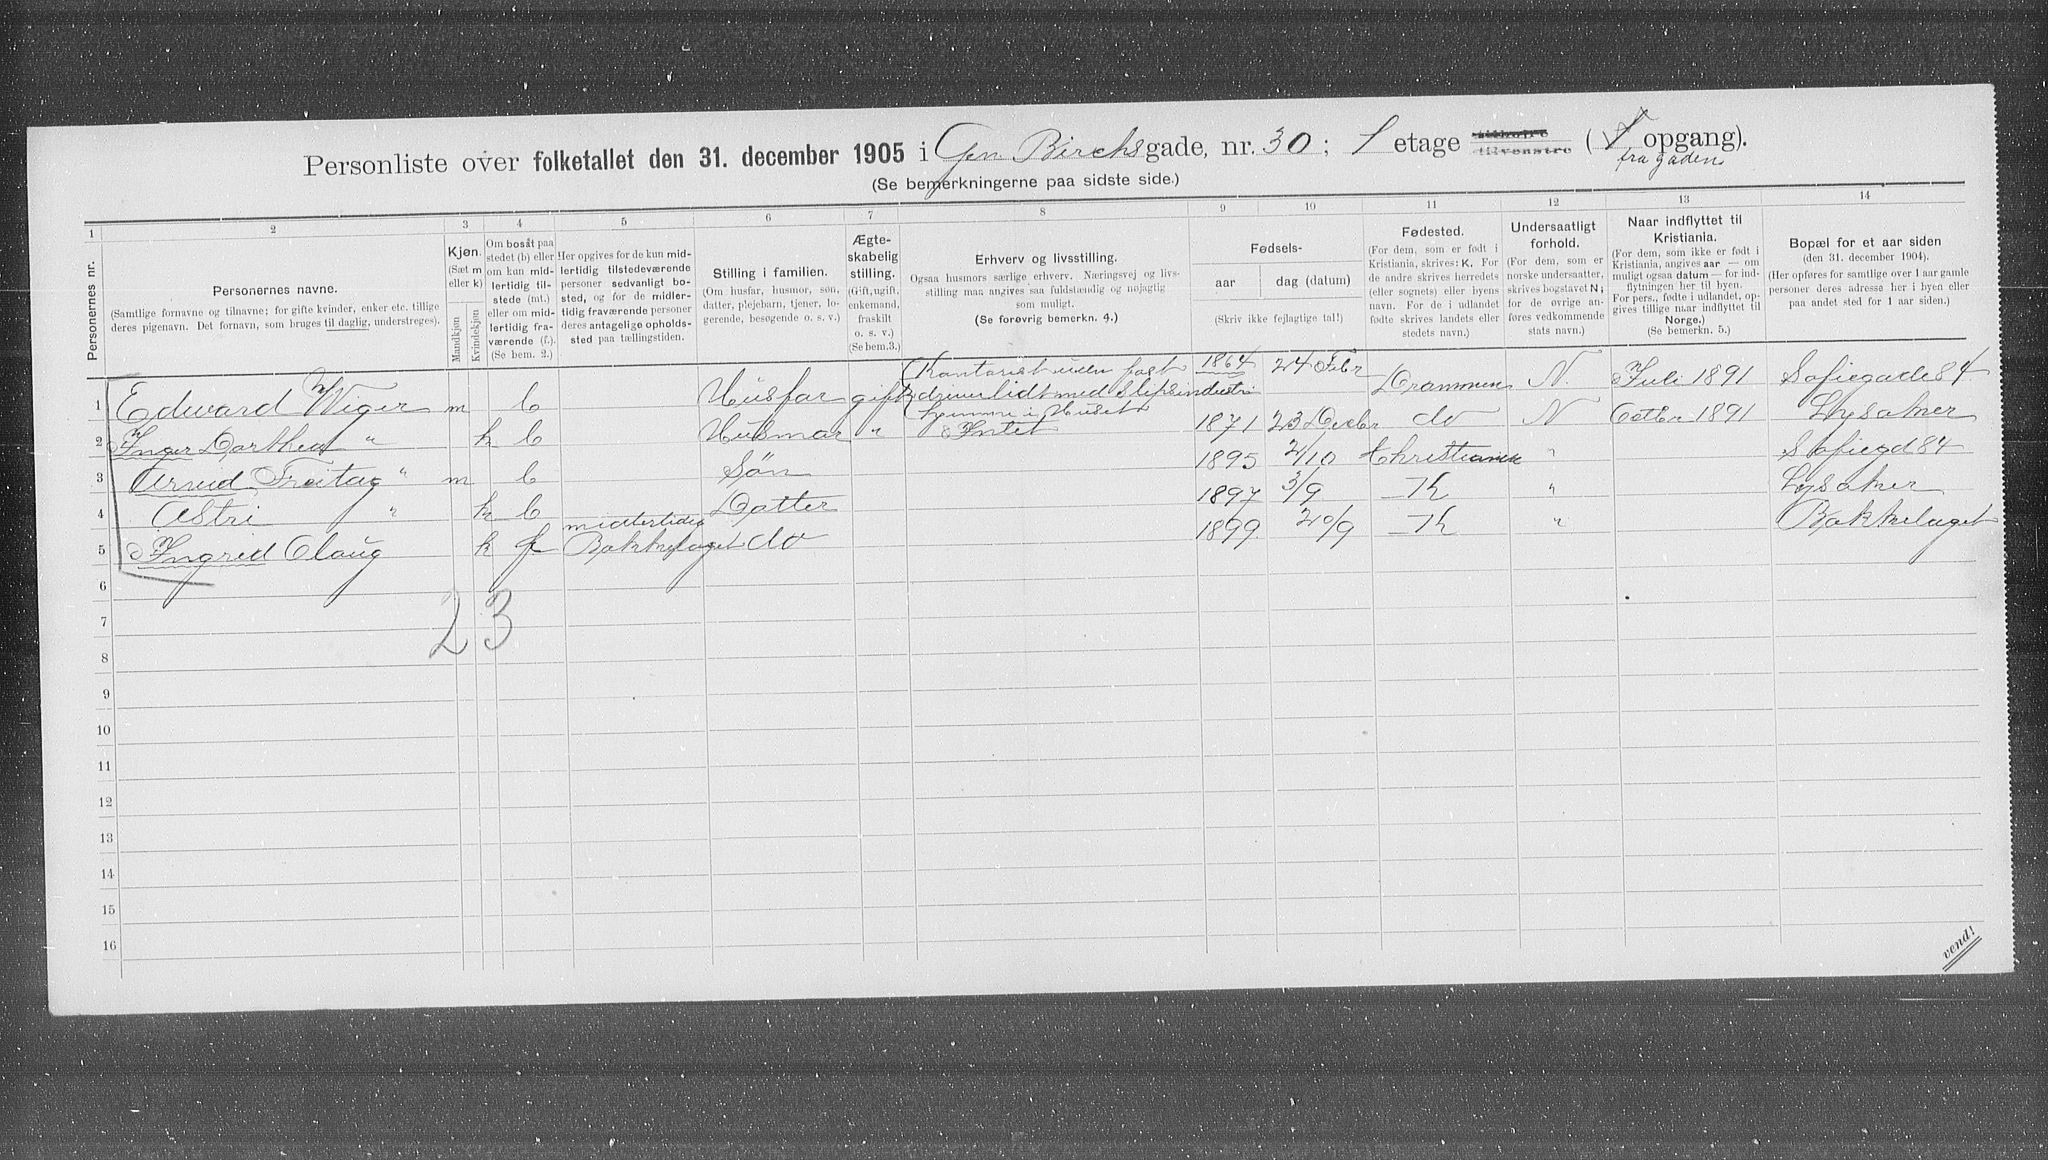 Personliste over folketallet den 31. december 1905 i Gen Birchsgade, nr. 30; 1 etage tilhøire tilvenstre (1 opgang).
fra gaden
(Se bemerkningerne paa sidste side.)
1 2 3 4 5 6 7 8 9 10 11 12 13 14
Personernes nr.
Personernes navne.
(Samtlige fornavne og tilnavne; for gifte kvinder, enker etc. tillige
deres pigenavn. Det fornavn, som bruges til daglig, understreges).
Kjøn.
(Sæt m
eller k)
Mandkjøn
Kvindekjøn
Om bosat paa
stedet (b) eller
om kun mid-
lertidig til-
stede (mt.)
eller om mid-
lertidig fra-
værende (f.).
(Se bem. 2.)
Her opgives for de kun mid-
lertidig tilstedeværende
personer sedvanligt bo-
sted, og for de midler-
tidig fraværende personer
deres antagelige opholds-
sted paa tællingstiden.
Stilling i familien.
(Om husfar, husmor, søn,
datter, plejebarn, tjener, lo-
gerende, besøgende o. s. v.)
Ægte-
skabelig
stilling.
(Gift, ugift,
enkemand,
fraskilt
o. s. v.)
(Se bem.3.)
Erhverv og livsstilling.
Ogsaa husmors særlige erhverv. Næringsvej og livs-
stilling maa angives saa fuldstændig og nøjagtig
som muligt.
(Se forøvrig bemerkn. 4.)
Fødsels-
aar dag (datum)
(Skriv ikke fejlagtige tal!)
Fødested.
(For dem, som er født i
Kristiania, skrives: K. For
de andre skrives herredets
(eller sognets) eller byens
navn. For de i udlandet
fødte skrives landets eller
stedets navn.)
Undersaatligt
forhold.
(For dem, som er
norske undersaatter,
skrives bogstavet N;
for de øvrige an-
føres vedkommende
stats navn.)
Naar indflyttet til
Kristiania.
(For dem, som ikke er født i
Kristiania, angives aar — om
muligt ogsaa datum — for ind-
flytningen her til byen.
For pers., fødte i udlandet, op-
gives tillige naar indflyttet til
Norge.)
(Se bemerkn. 5.)
Bopæl for et aar siden
(den 31. december 1904).
(Her opføres for samtlige over 1 aar gamle
personer deres adresse her i byen eller
paa andet sted for 1 aar siden.)
1 Edward Wiger m b Husfar gift Kontorist uden fast 1864 24 Febr Drammen N. Juli 1891 Sofiegade 84
driver lidt med Slipsindustri
hjemme i Huset
2 Inger Dorthea " k b Husmor " Intet 1871 23 Decbr do N Octbr 1891 Lysaker
3 Arvid Freitag " m b Søn 1895 2/10 Christiania " Sofiegd 84
4 Astri " k b Datter 1897 3/9 K " Lysaker
5 Ingrid Olaug k f midlertidig Bækkelaget do 1899 20/9 K " Bækkelaget
6
7
2 3
8
9
10
11
12
13
14
15
16
vend!